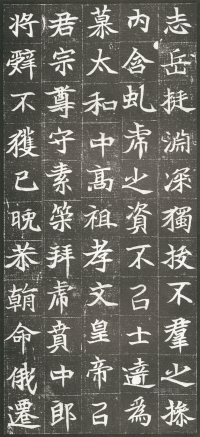 志岳挺淵深獨拔不羣之操
內含虬虎之資不㠯士達為
慕太和中高祖孝文皇帝㠯
君宗尊守素策拜虎賁中郎
將辭不獲已晚恭朝命俄遷